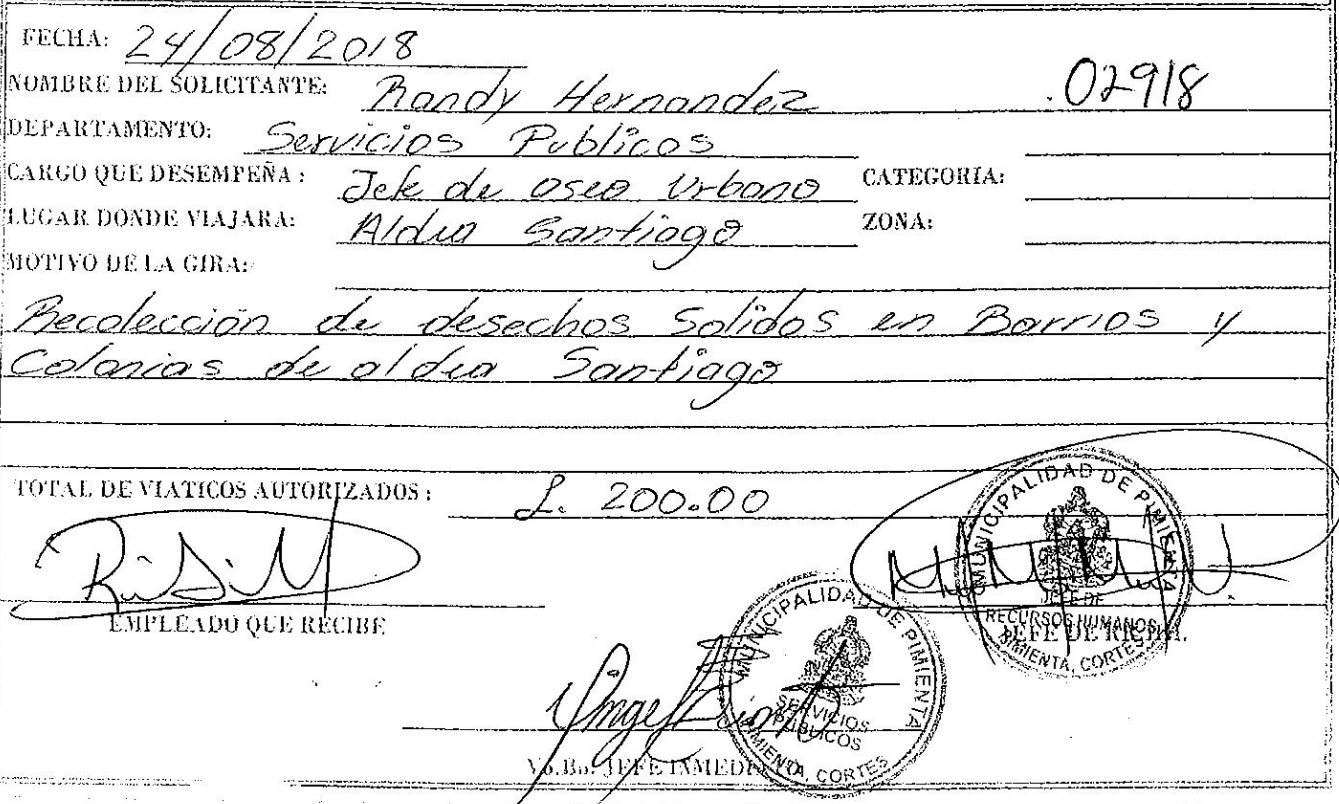 FECHA: 24/08/2018
NOMBRE DEL SOLICITANTE: Randy Hernandez 02918
DEPARTAMENTO: Servicios Publicos
CARGO QUE DESEMPEÑA: Jefe de aseo Urbano CATEGORIA:
LUGAR DONDE VIAJARA: Aldea Santiago ZONA:
MOTIVO DE LA GIRA:
Recolección de desechos Solidos en Barrios y
Colonias de aldea Santiago
TOTAL DE VIATICOS AUTORIZADOS: L. 200.00
MUNICIPALIDAD DE PIMIENTA
JEFE DE
RECURSOS HUMANOS
PIMIENTA, CORTES
EMPLEADO QUE RECIBE
JEFE DE RR.HH.
MUNICIPALIDAD DE PIMIENTA
SERVICIOS
PUBLICOS
PIMIENTA, CORTES
Vo.Bo. JEFE INMEDIATO